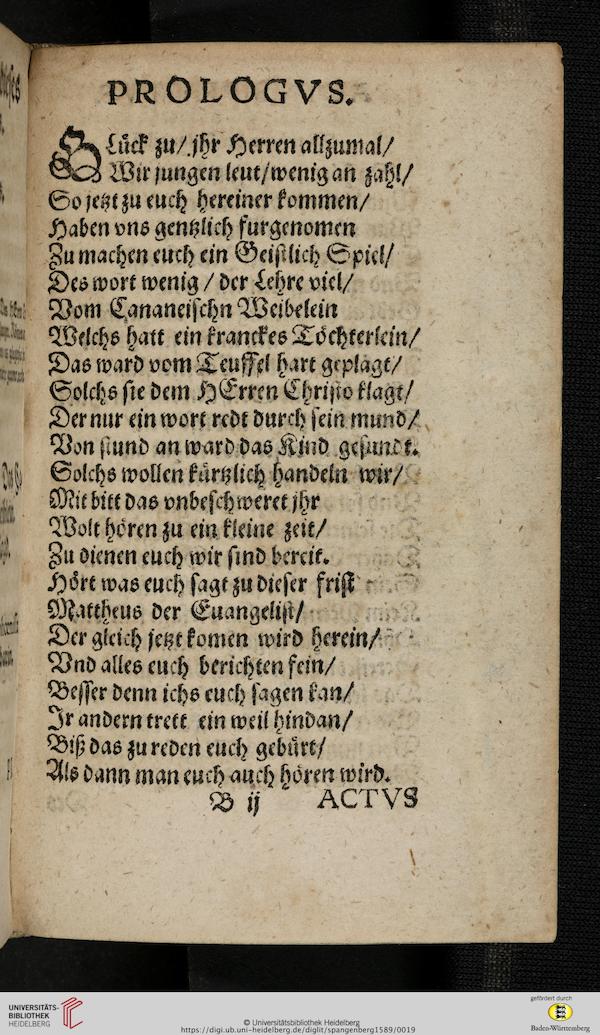 PROLOGVS.
GLück zu/ jhr Herren allzumal/
Wir jungen leut/ wenig an zahl/
So jetzt zu euch hereiner kommen/
Haben vns gentzlich furgenomen
Zu machen euch ein Geistlich Spiel/
Des wort wenig / der Lehre viel/
Vom Cananeischn Weibelein
Welchs hatt ein kranckes Töchterlein/
Das ward vom Teuffel hart geplagt/
Solchs sie dem HErren Christo klagt/
Der nur ein wort redt durch sein mund/
Von stund an ward das Kind gesundt.
Solchs wollen kürtzlich handeln wir/
Mit bitt das vnbeschweret jhr
Wolt hören zu ein kleine zeit/
Zu dienen euch wir sind bereit.
Hört was euch sagt zu dieser frist
Mattheus der Euangelist/
Der gleich jetzt komen wird herein/
Vnd alles euch berichten fein/
Besser denn ichs euch sagen kan/
Jr andern trett ein weil hindan/
Biß das zu reden euch gebürt/
Als dann man euch auch hören wird.
B ij ACTVS
UNIVERSITÄTS-
BIBLIOTHEK
HEIDELBERG
© Universitätsbibliothek Heidelberg
https://digi.ub.uni-heidelberg.de/diglit/spangenberg1589/0019
gefördert durch
Baden-Württemberg